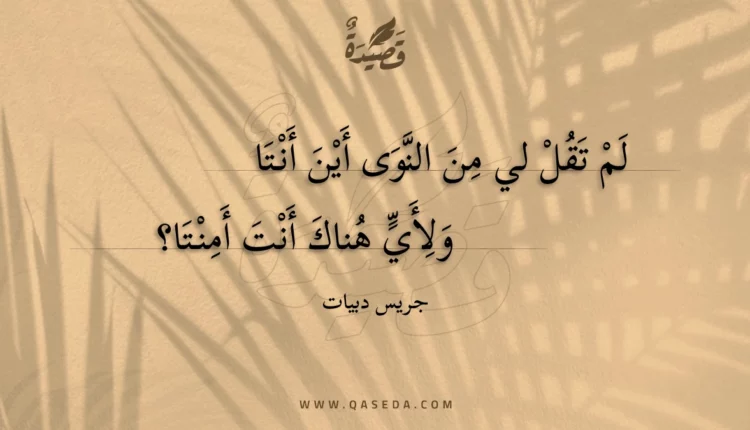 قَصِيْدَةٌ
لَمْ تَقُلْ لي مِنَ النَّوَى أَيْنَ أَنْتَا
وَلِأَيٍّ هُناكَ أَنْتَ أَمِنْتَا؟
جريس دبيات
WWW.QASEDA.COM